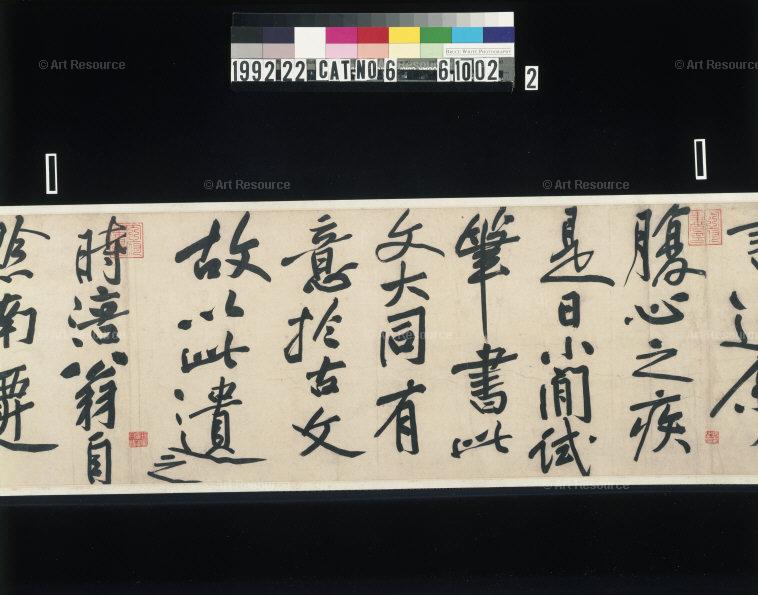 BRUCE WHITE PHOTOGRAPHY
1992 22 CAT.NO 6 6.10.02
2
© Art Resource
© Art Resource
© Art Resource
© Art Resource
腹心之疾
是日小閒試
筆書此
文大同有
意於古文
故以此遺之
時涪翁自
黔南遷